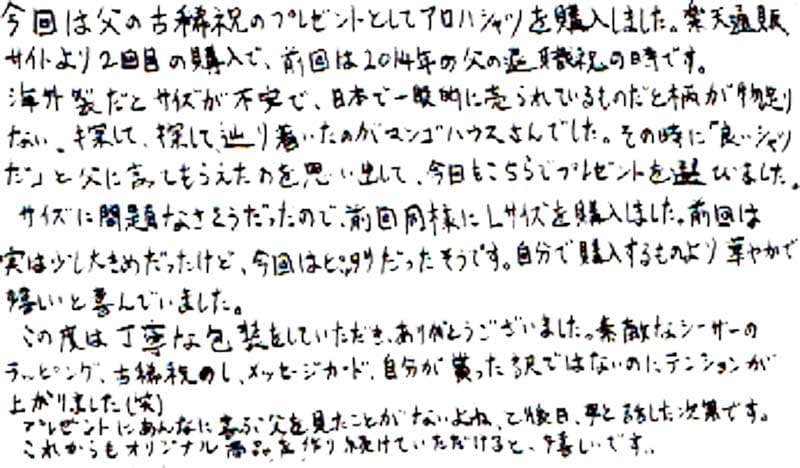 今回は父の古稀祝のプレゼントとしてアロハシャツを購入しました。楽天通販
サイトより2回目の購入で、前回は2014年の父の退職祝の時です。
海外製だとサイズが不安で、日本で一般的に売られているものだと柄が物足り
ない、探して、探して、辿り着いたのがマンゴハウスさんでした。その時に「良いシャツ
だ」と父に言ってもらえたのを思い出して、今回もこちらでプレゼントを選びました。
サイズに問題なさそうだったので、前回同様にLサイズを購入しました。前回は
実は少し大きめだったけど、今回はピッタリだったそうです。自分で購入するものより華やかで
嬉しいと喜んでいました。
この度は丁寧な包装をしていただき、ありがとうございました。素敵なシーサーの
ラッピング、古稀祝のし、メッセージカード、自分が貰った訳ではないのにテンションが
上がりました(笑)
プレゼントにあんなに喜ぶ父を見たことがないよね、と後日、母と話した次第です。
これからもオリジナル商品を作り続けていただけると、嬉しいです。